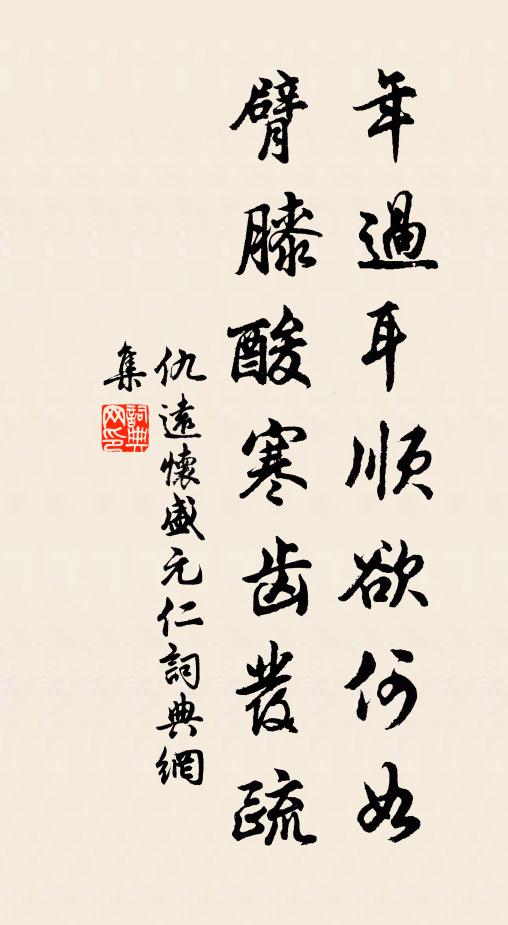 年過耳順欲何如
臂膝酸寒齿發疏
仇遠懷盛元仁詞典網
集
詞典
网印